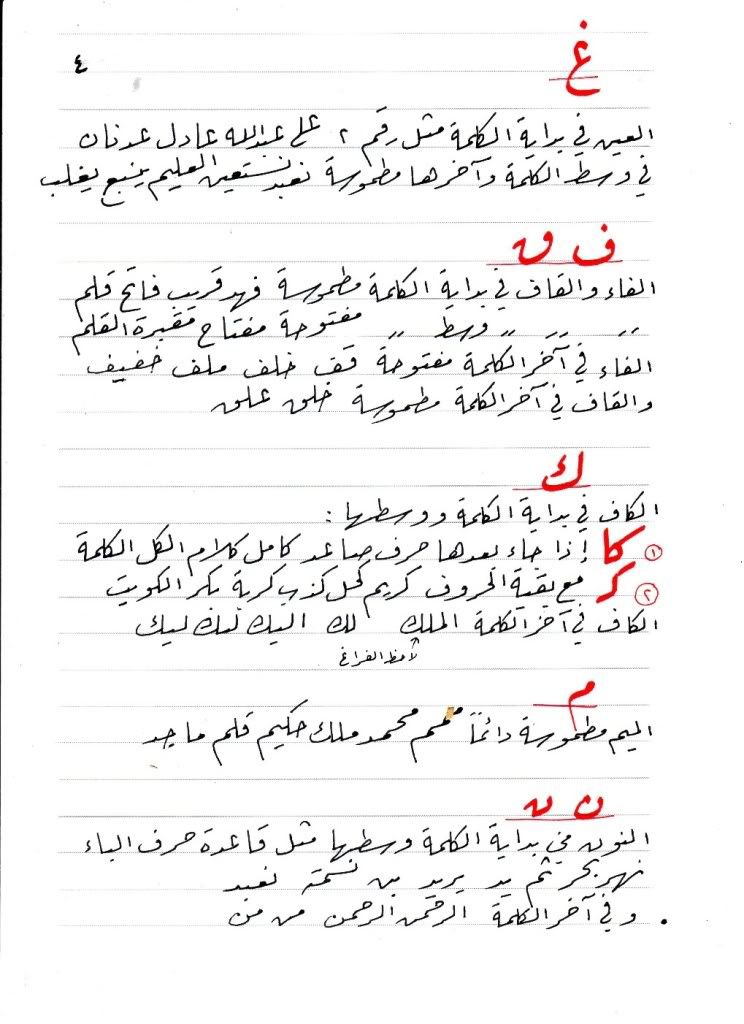 ٤
غ
العين في بداية الكلمة مثل رقم ٢ علي عبدالله عادل عدنان
في وسط الكلمة وآخرها مطموسة نعبد نستعين العليم ينبع يغلب
ف ق
الفاء والقاف في بداية الكلمة مطموسة فهد قريب فاتح قلم
〃 〃 〃 وسط 〃 مفتوحة مفتاح مقبرة القلم
الفاء في آخر الكلمة مفتوحة قف خلف ملف خفيف
والقاف في آخر الكلمة مطموسة خلق علق
ك
الكاف في بداية الكلمة ووسطها :
١ كا إذا جاء بعدها حرف صاعد كامل كلام الكل الكلمة
٢ كر مع بقية الحروف كريم كحل كذب كرية بكر الكويت
الكاف في آخر الكلمة الملك لك اليك لبيك
لاحظ الفراغ
م
الميم مطموسة دائماً محمد ملك حكيم قلم ماجد
ن ن
النون في بداية الكلمة وسطها مثل قاعدة حرف الباء
نهر بحر ثم يد يريد بن نسمة نعبد
وفي آخر الكلمة الرحمن الرحمن من من